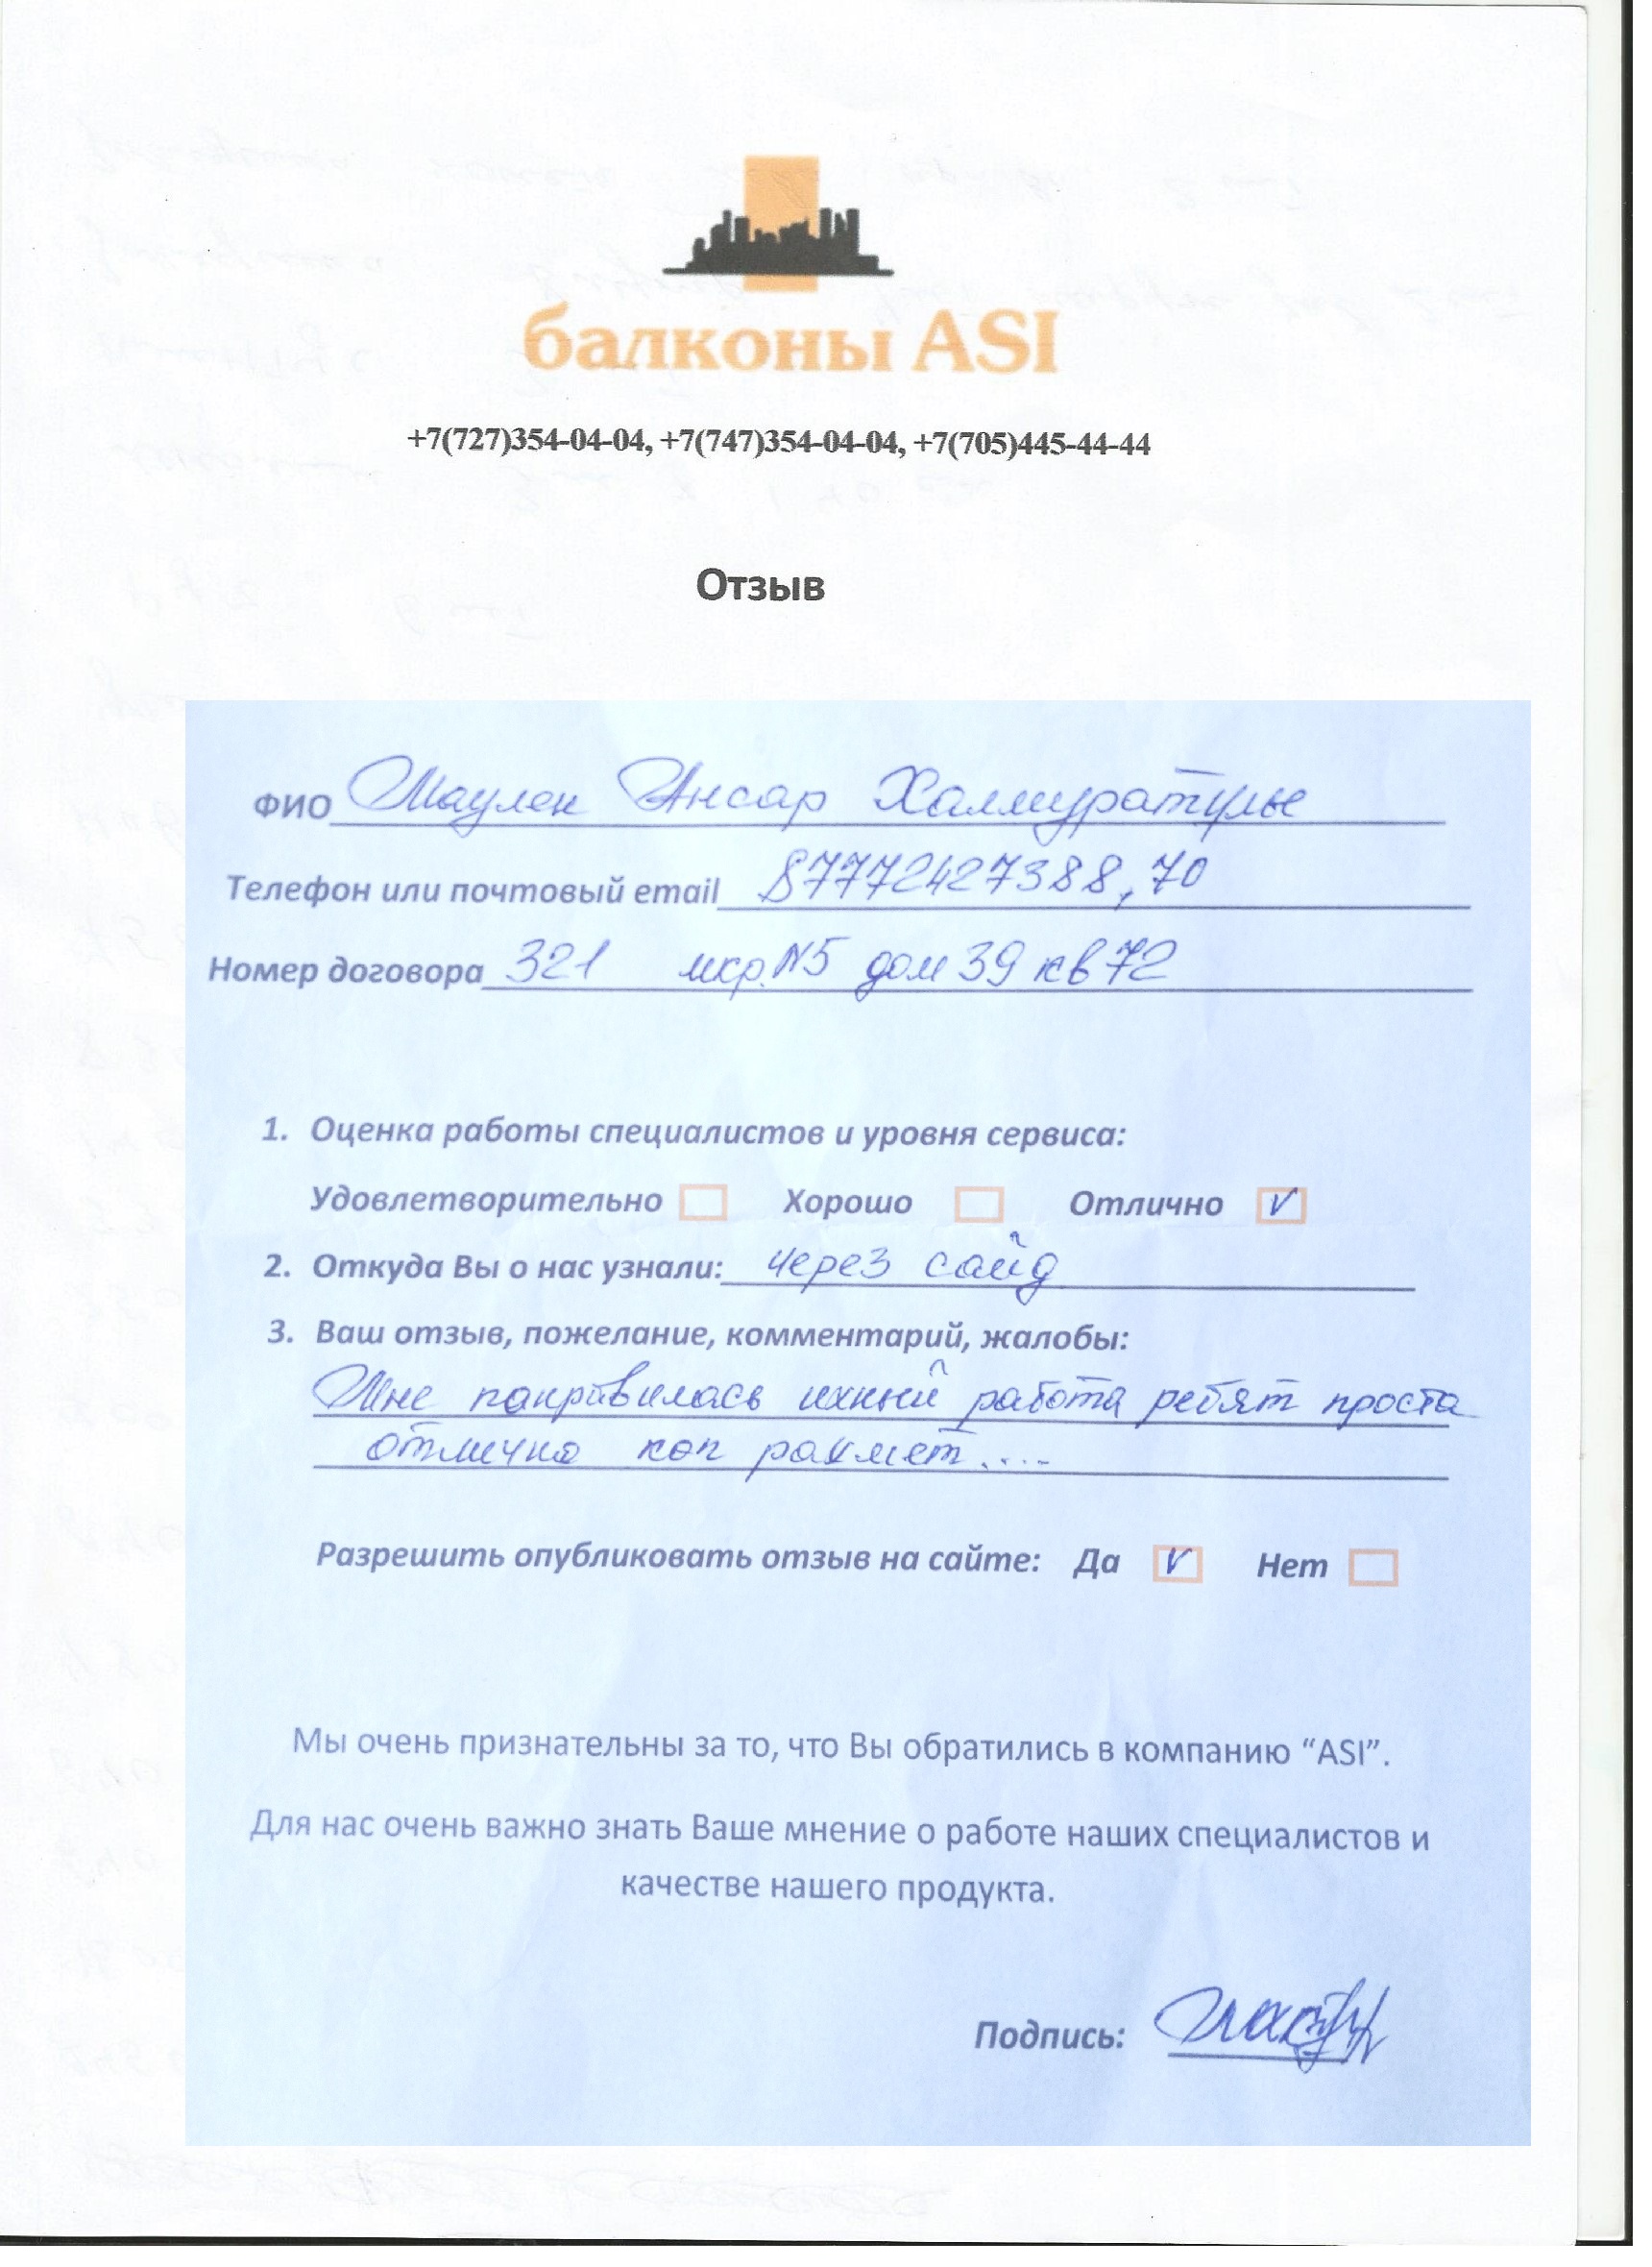 балконы ASI
+7(727)354-04-04, +7(747)354-04-04, +7(705)445-44-44
Отзыв
ФИО Маулен Ансар Халмуратулы
Телефон или почтовый email 87772427388, 70
Номер договора 321 мкр.N5 дом 39 кв 72
1. Оценка работы специалистов и уровня сервиса:
Удовлетворительно Хорошо Отлично V
2. Откуда Вы о нас узнали: через сайд
3. Ваш отзыв, пожелание, комментарий, жалобы:
Мне панравилась ихний работа ребят проста
отлично коп рахмет....
Разрешить опубликовать отзыв на сайте: Да V Нет
Мы очень признательны за то, что Вы обратились в компанию “ASI”.
Для нас очень важно знать Ваше мнение о работе наших специалистов и
качестве нашего продукта.
Подпись: